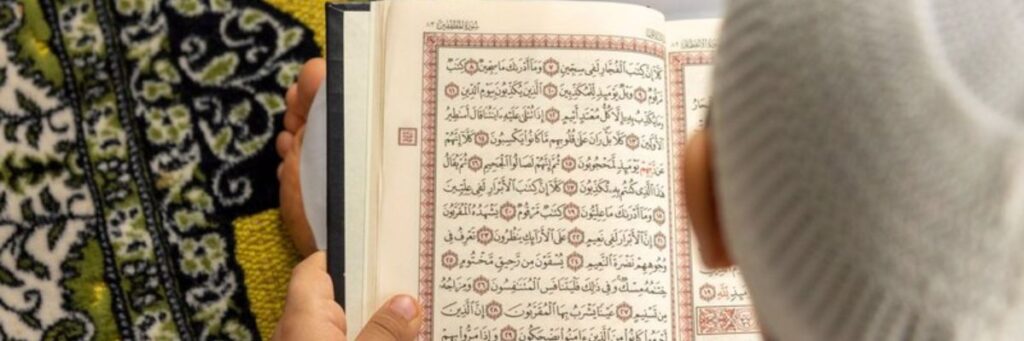 سُورَةُ المُطَفِّفِينَ ٨٣
كَلَّا إِنَّ كِتَٰبَ ٱلْفُجَّارِ لَفِى سِجِّينٍ ٧ وَمَآ أَدْرَىٰكَ مَا سِجِّينٌ ٨ كِتَٰبٌ
مَّرْقُومٌ ٩ وَيْلٌ يَوْمَئِذٍ لِّلْمُكَذِّبِينَ ١٠ ٱلَّذِينَ يُكَذِّبُونَ بِيَوْمِ ٱلدِّينِ ١١
وَمَا يُكَذِّبُ بِهِۦٓ إِلَّا كُلُّ مُعْتَدٍ أَثِيمٍ ١٢ إِذَا تُتْلَىٰ عَلَيْهِ ءَايَٰتُنَا قَالَ أَسَٰطِيرُ
ٱلْأَوَّلِينَ ١٣ كَلَّا بَلْ رَانَ عَلَىٰ قُلُوبِهِم مَّا كَانُوا۟ يَكْسِبُونَ ١٤ كَلَّآ إِنَّهُمْ
عَن رَّبِّهِمْ يَوْمَئِذٍ لَّمَحْجُوبُونَ ١٥ ثُمَّ إِنَّهُمْ لَصَالُوا۟ ٱلْجَحِيمِ ١٦ ثُمَّ يُقَالُ
هَٰذَا ٱلَّذِى كُنتُم بِهِۦ تُكَذِّبُونَ ١٧ كَلَّآ إِنَّ كِتَٰبَ ٱلْأَبْرَارِ لَفِى عِلِّيِّينَ
١٨ وَمَآ أَدْرَىٰكَ مَا عِلِّيُّونَ ١٩ كِتَٰبٌ مَّرْقُومٌ ٢٠ يَشْهَدُهُ ٱلْمُقَرَّبُونَ
٢١ إِنَّ ٱلْأَبْرَارَ لَفِى نَعِيمٍ ٢٢ عَلَى ٱلْأَرَآئِكِ يَنظُرُونَ ٢٣ تَعْرِفُ فِى
وُجُوهِهِمْ نَضْرَةَ ٱلنَّعِيمِ ٢٤ يُسْقَوْنَ مِن رَّحِيقٍ مَّخْتُومٍ ٢٥
خِتَٰمُهُۥ مِسْكٌ وَفِى ذَٰلِكَ فَلْيَتَنَافَسِ ٱلْمُتَنَٰفِسُونَ ٢٦ وَمِزَاجُهُۥ
مِن تَسْنِيمٍ ٢٧ عَيْنًا يَشْرَبُ بِهَا ٱلْمُقَرَّبُونَ ٢٨ إِنَّ ٱلَّذِينَ
أَجْرَمُوا۟ كَانُوا۟ مِنَ ٱلَّذِينَ ءَامَنُوا۟ يَضْحَكُونَ ٢٩ وَإِذَا مَرُّوا۟ بِهِمْ